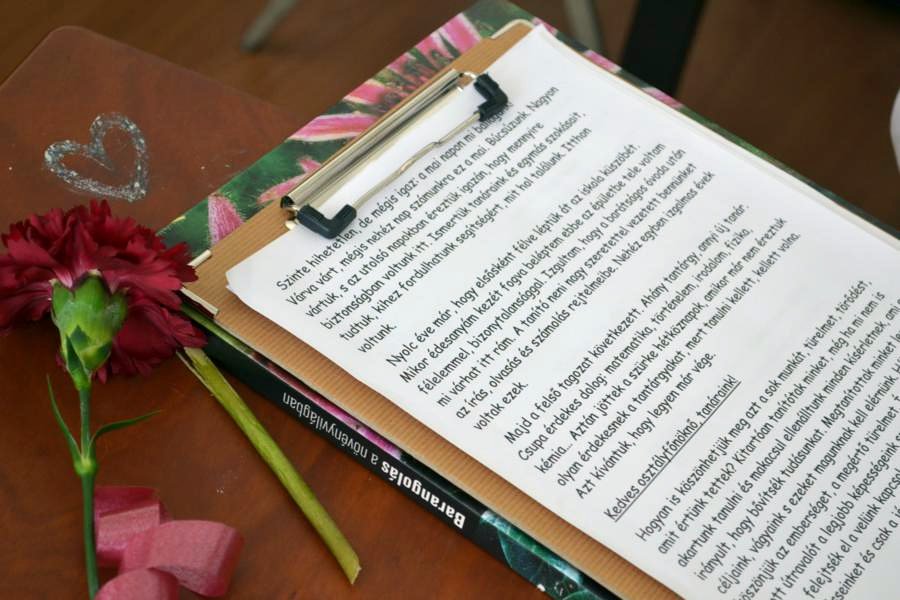 Szinte hihetetlen, de mégis igaz: a mai napon mi
Várva várt, mégis nehéz nap számunkra ez a mai. Búcsúzunk. Nagyon
vártuk, s az utolsó napokban éreztük igazán, hogy mennyire
biztonságban voltunk itt. Ismertük tanáraink és egymás szokásait,
tudtuk, kihez fordulhatunk segítségért, mit hol találunk. Itthon
voltunk.
Nyolc éve már, hogy elsősként félve léptük át az iskola küszöbét.
Mikor édesanyám kezét fogva beléptem ebbe az épületbe tele voltam
félelemmel, bizonytalansággal. Izgultam, hogy a barátságos óvoda után
mi várhat itt rám. A tanító néni nagy szeretettel vezetett bennünket
az írás, olvasás és számolás rejtelmeibe. Nehéz egyben izgalmas évek
voltak ezek.
Majd a felső tagozat következett. Ahány tantárgy, annyi új tanár.
Csupa érdekes dolog: matematika, történelem, irodalom, fizika,
kémia... Aztán jöttek a szürke hétköznapok, amikor már nem éreztük
olyan érdekesnek a tantárgyakat, mert tanulni kellett, kellett volna.
Azt kívántuk, hogy legyen már vége.
Kedves osztályfőnöknő, tanáraink!
Hogyan is köszönhetjük meg azt a sok munkát, türelmet, törődést,
amit értünk tettek? Kitartóan tanítóták minket, még ha mi nem is
akartunk tanulni és makacsul ellenálltunk minden kísérletnek, ami
irányult, hogy bővítsék tudásunkat. Megtanítottak minket
céljaink, vágyaink s ezeket magunknak kell elérnünk.
köszönjük az emberséget, a megértő türelmet
útravalót a legjobb képességeink
felejtsék el a velünk
és csak a
Barangolás a növényvilágban